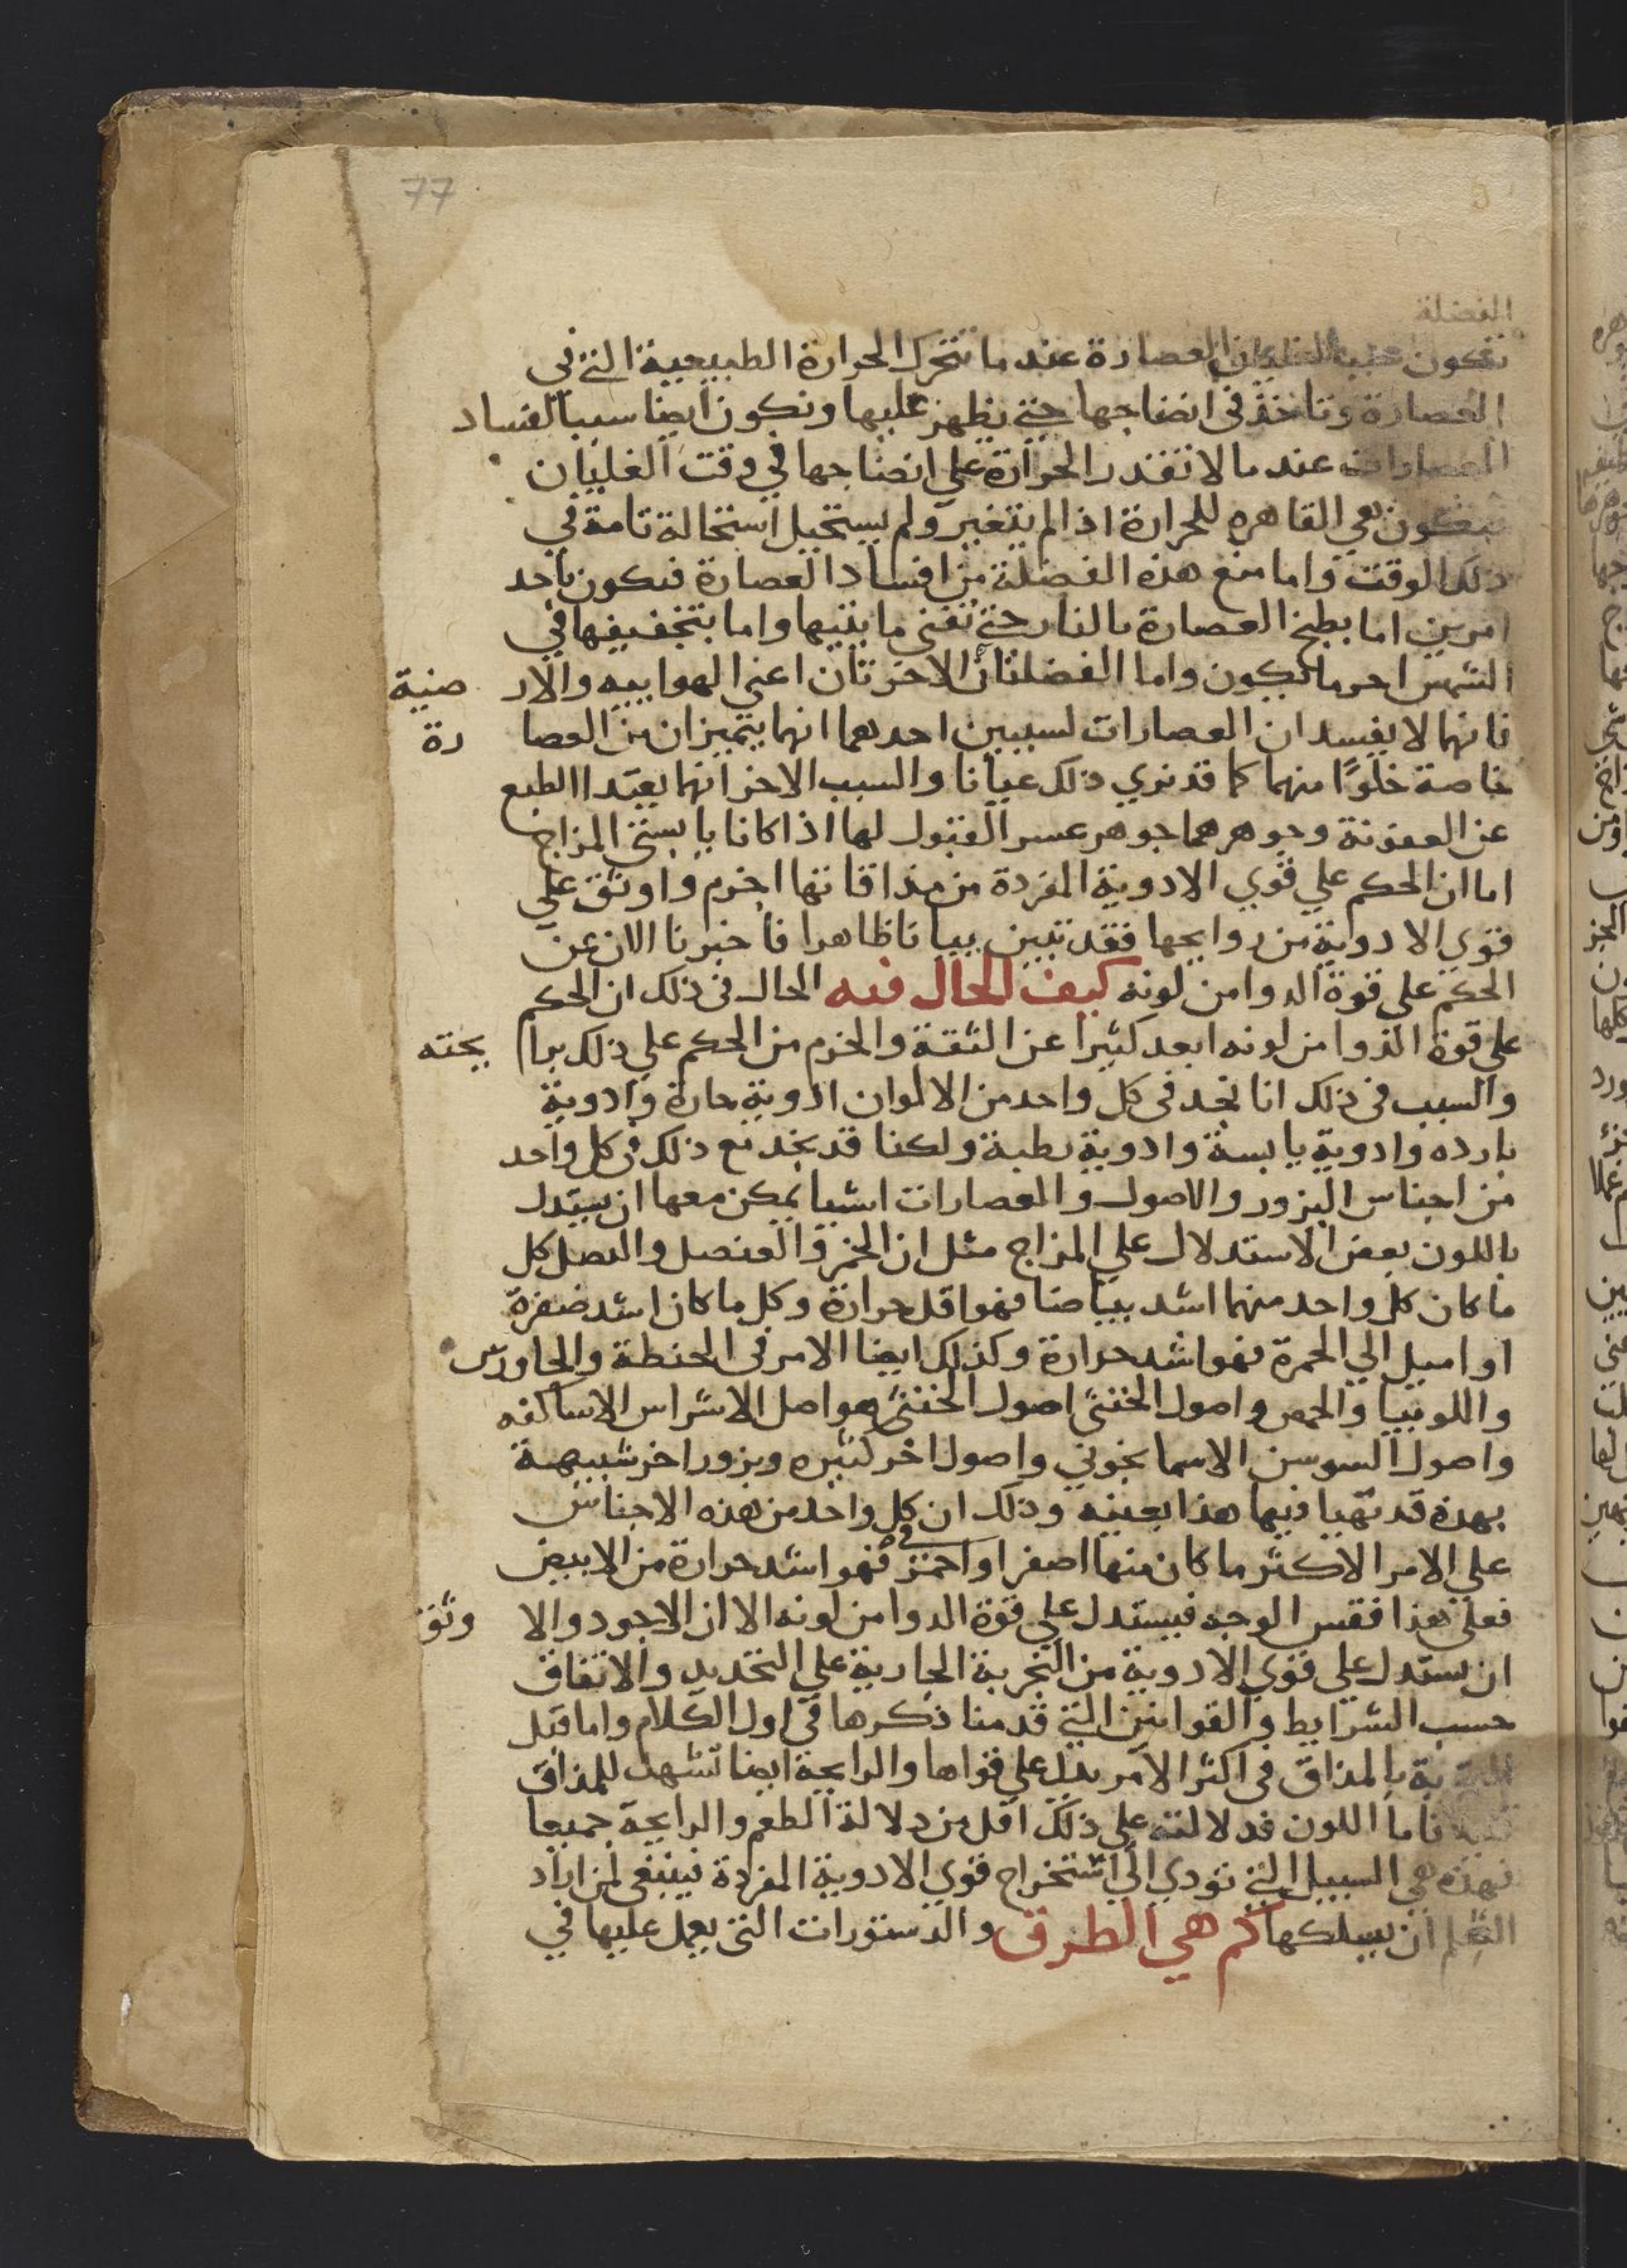 77
الفضلة
تكون سبب الغليان العصارة عند ما تتحرك الحرارة الطبيعية التي في
العصارة وتاخذ في انضاجها حتى تظهر عليها وتكون ايضا سببا لفساد
العصارات عند ما لا تقدر الحرارة على انضاجها في وقت الغليان
فتكون هي القاهره للحرارة اذا لم يتغير ولم يستحيل استحالة تامة في
ذلك الوقت واما منع هذه الفضلة من افساد العصارة فتكون باحد
امرين اما بطبخ العصارة بالنار حتى تفنى مايتها واما بتخفيفها في
الشمس احر ما تكون واما الفضلتان الاخرتان اعني الهواييه والارضية
فانهما لا يفسدان العصارات لسببين احدهما انهما يتميزان من العصارة
خاصة خلوًا منهما كما قد نري ذلك عيانا والسبب الاخر انهما بعيدا الطبع
عن العفونة وجوهرهما جوهر عسر القبول لها اذا كانا يابستي المزاج
اما ان الحكم علي قوي الادوية المفردة من مذاقاتها احزم واوثق علي
قوي الادوية من روايحها فقد تبين بيانا ظاهرا فاخبرنا الان عن
الحكم علي قوة الدوا من لونه كيف الحال فيه الحال في ذلك ان الحكم
علي قوة الدوا من لونه ابعد كثيرا عن الثقة والحزم من الحكم علي ذلك برايحته
والسبب في ذلك انا نجد في كل واحد من الالوان ادوية حارة وادوية
بارده وادوية يابسة وادوية رطبة ولكنا قد نجد مع ذلك في كل واحد
من اجناس البزور والاصول والعصارات اشيا يمكن معها ان يستدل
باللون بعض الاستدلال علي المزاج مثل ان الخمر والعنصل والبصل كل
ما كان كل واحد منهما اشد بياضا فهو اقل حرارة وكل ما كان اشد صفرة
او اميل الي الحمرة فهو اشد حرارة وكذلك ايضا الامر في الحنطة والجاورس
واللوبيا والحمص واصول الخنثى اصول الخنثى هو اصل الاشراس الاساكفه
واصول السوسن الاسمانجوني واصول اخر كثيره وبزور اخر شبيهة
بهذه قد تهيا فيها هذا بعينه وذلك ان كل واحد من هذه الاجناس
علي الامر الاكثر ما كان منها اصفر او احمر فهو اشد حرارة من الابيض
فعلى هذا فقس الوجه فيستدل علي قوة الدوا من لونه الا ان الاجود والاوثق
ان يستدل علي قوي الادوية من التجربة الجارية علي التحديد والاتفاق
حسب الشرايط والقوانين التي قدمنا ذكرها في اول الكلام واما قبل
التجربة بالمذاق في اكثر الامر يدل علي قواها والرايحة ايضا تشهد للمذاق
فاما اللون فدلالته علي ذلك اقل من دلالة الطعم والرايحة جميعا
فهذه هي السبيل التي تودي الي استخراج قوي الادوية المفردة فينبغي لمن اراد
التعلم ان يسلكها كم هي الطرق والدستورات التي يعمل عليها في